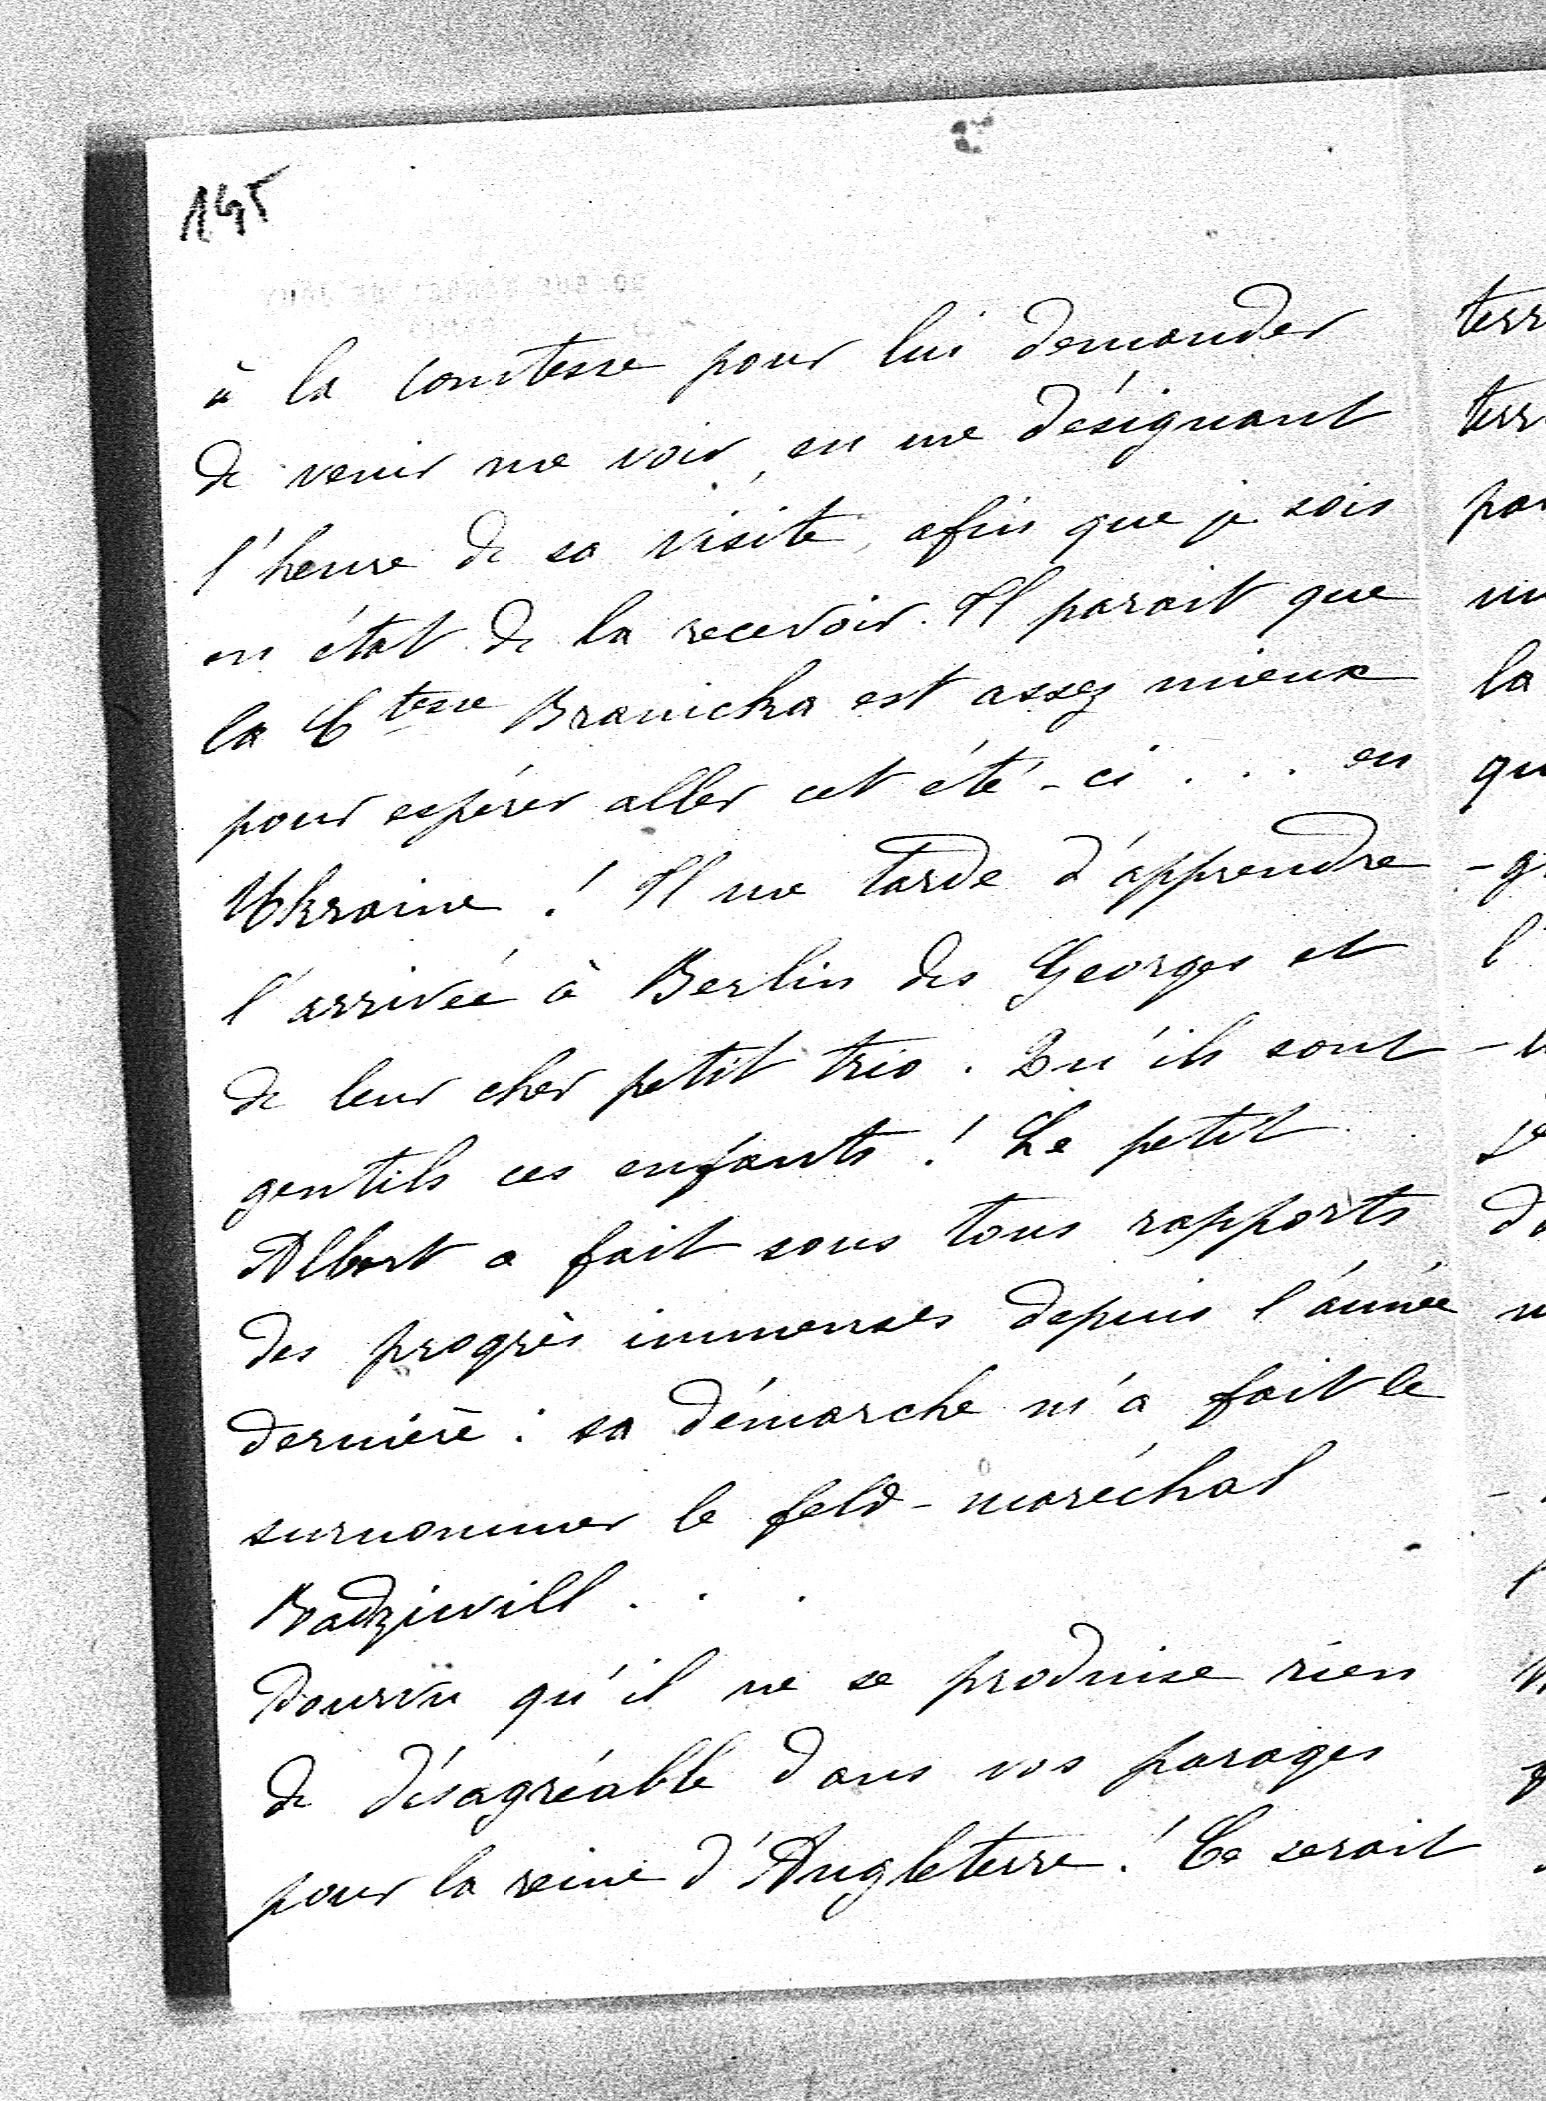 145
à la comtesse pour lui demander
de venir me voir, en me désignant
l'heure de sa visite, afin que je sois
en état de la recevoir. Il parait que
la Ctesse Branicka est assez mieux
pour espérer aller cet été-ci . . . en
Ukraine ! Il me tarde d'apprendre
l'arrivée à Berlin des Georges et
de leur cher petit trio. Qu'ils sont
gentils ces enfants ! Le petit
Albert a fait sous tous rapports
des progrès immenses depuis l'année
dernière : sa démarche m'a fait le
surnommer le feld-maréchal
Radziwill . . .
Pourvu qu'il ne se produise rien
de désagréable dans vos parages
pour la reine d'Angleterre ! Ce serait